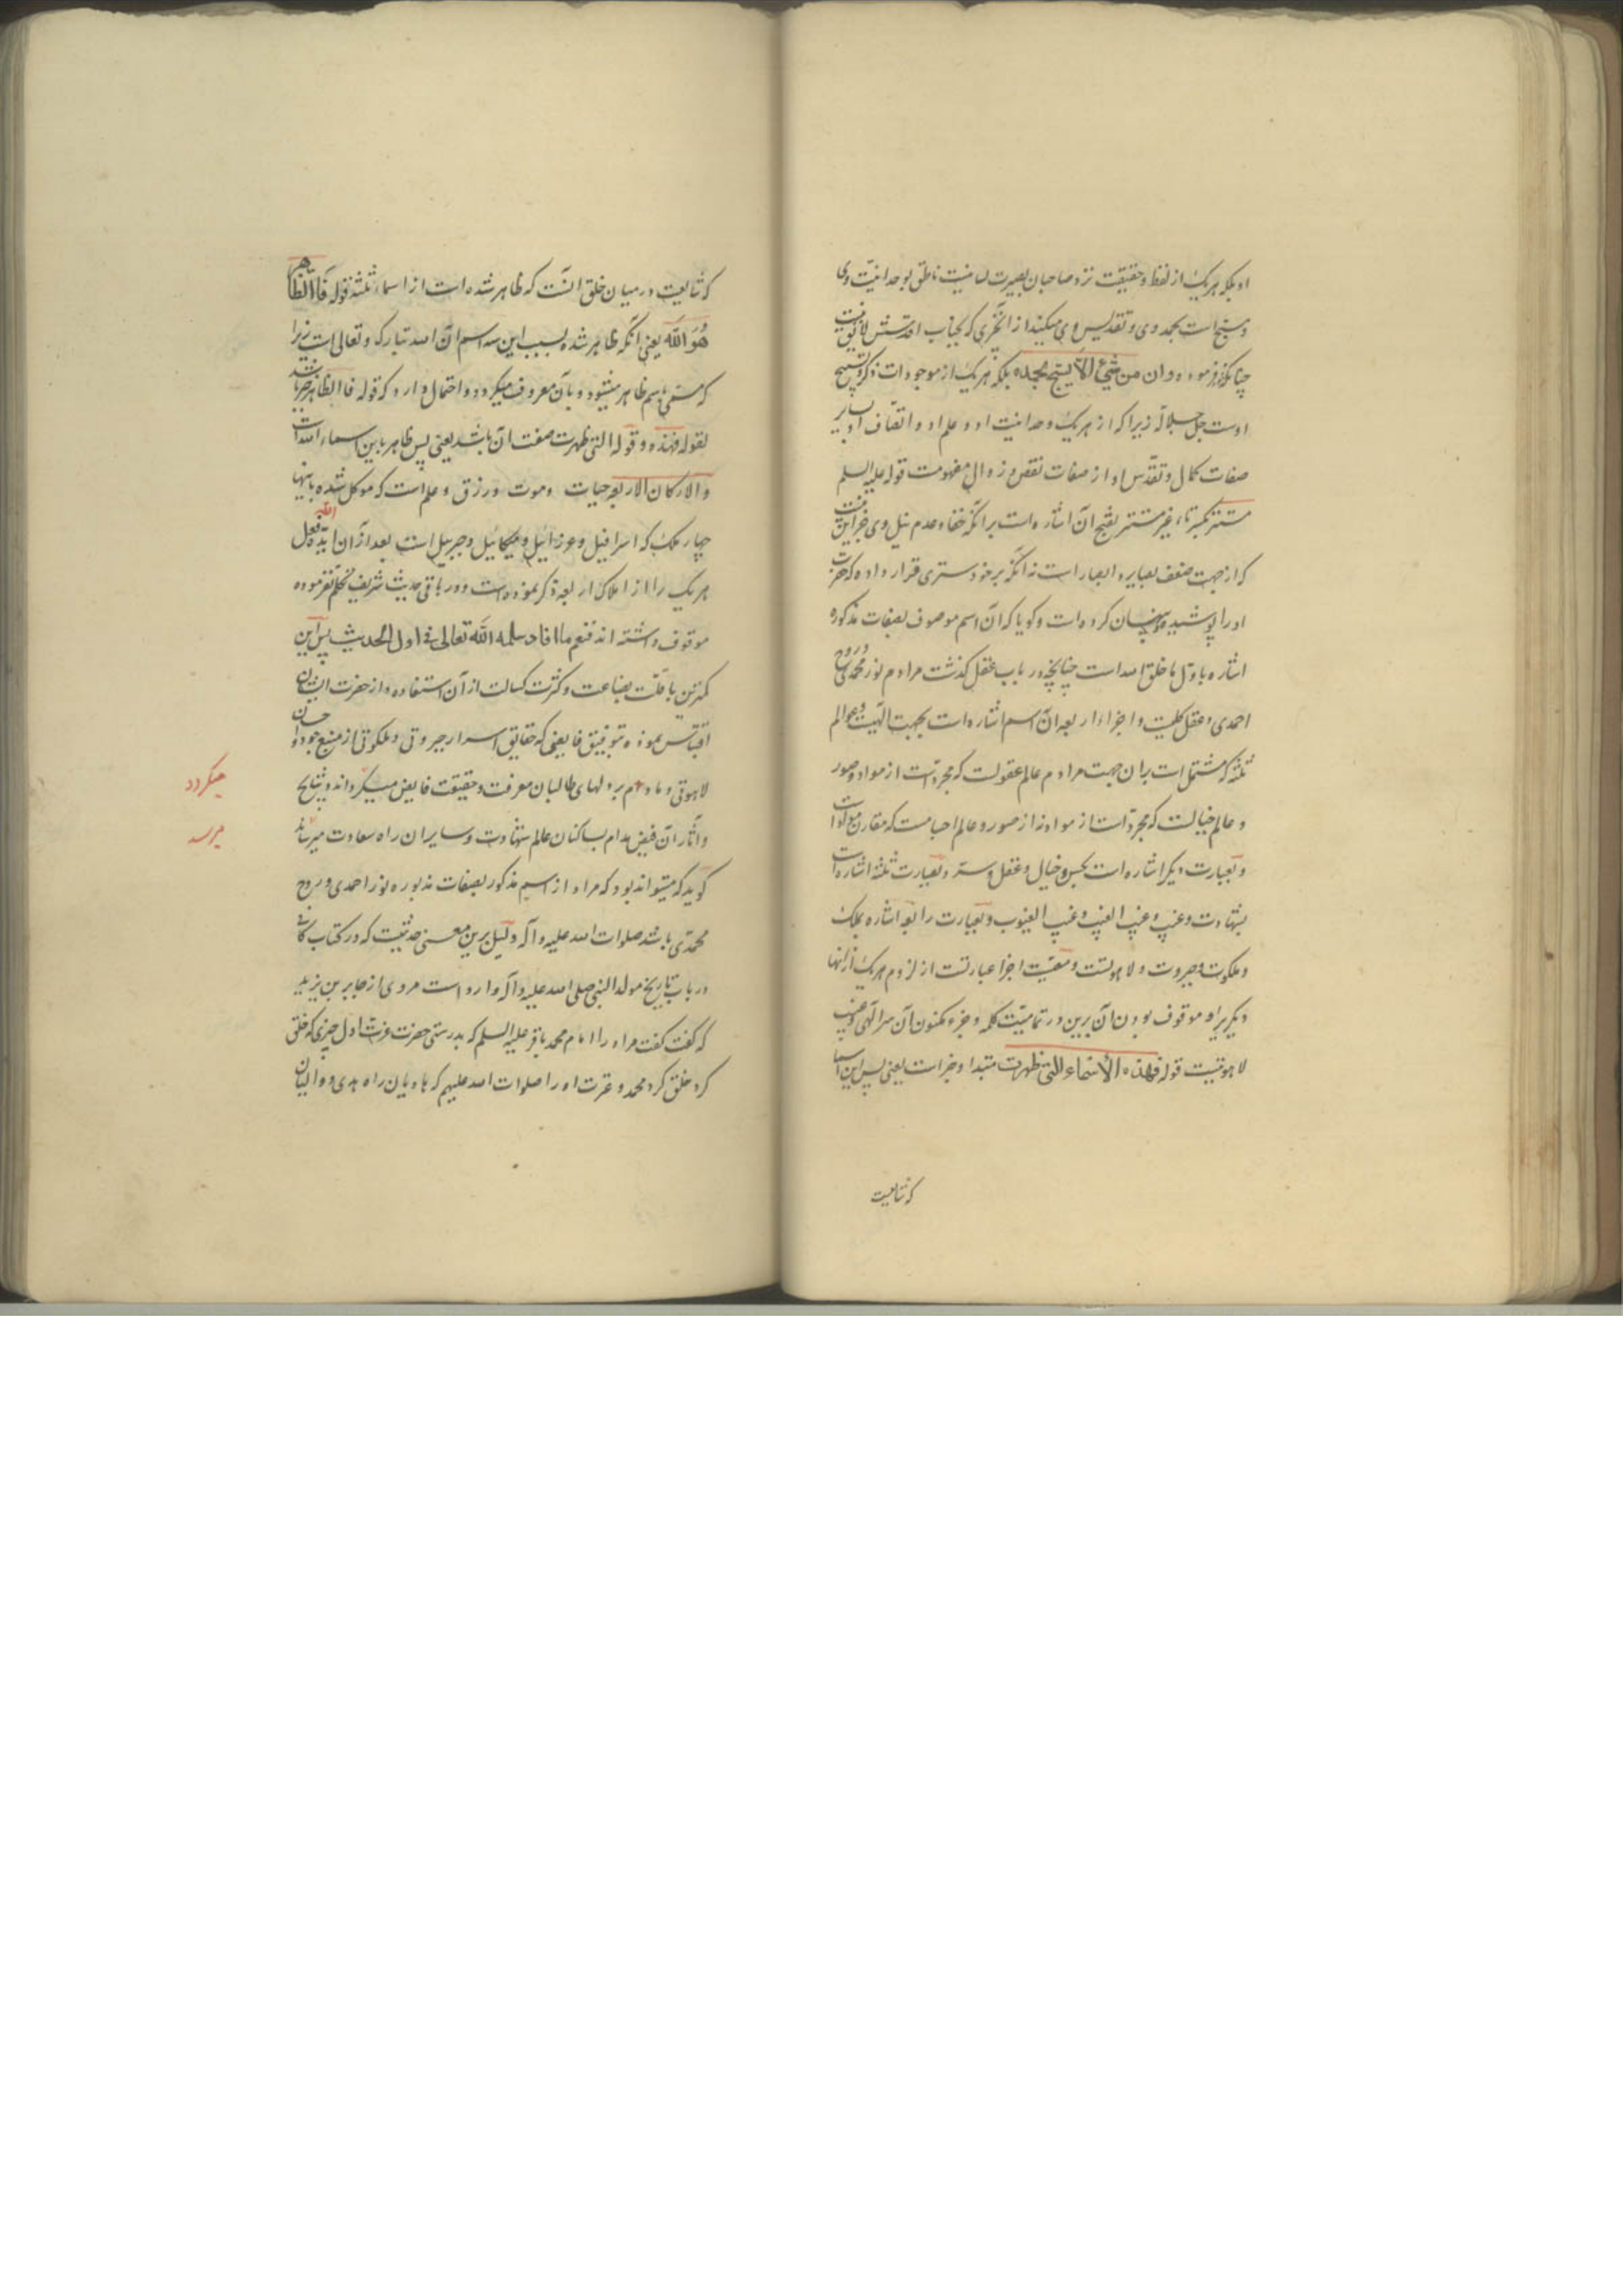 او بلکه هریک از لفظ و حقیقت نزد صاحبان بصیرت لسانیست ناطق بوحدانیت وی
و مسبح است بحمد وی و تقدیس وی میکند از آنچیزی که بجناب اقدسش لایق نیست
چنانکه فرموده وان من شیء الا یسبح بحمده بلکه هریک از موجودات ذکر و تسبیح
اوست جل جلاله زیرا که از هریک وحدانیت او و علم او و اتصاف او بسایر
صفات کمال و تقدس او از صفات نقص و زوال مفهومست قوله علیه السلم
مستتر بکسر تاء غیر مستتر بفتح آن اشاره است برآنکه خفا و عدم نیل وی جز این نیست
که از جهت ضعف بصایر و ابصار است نه آنکه بر خود ستری قرار داده که حضرت
او را پوشیده و پنهان کرده است و گویا که آن اسم موصوف بصفات مذکوره
اشاره باول ما خلق الله است چنانچه در باب عقل گذشت مرادم نور محمدی و روح
احمدی و عقل کلیست و اجزاء اربعه آن اسم اشاره است بجهت الهیت و عوالم
ثلثه که مشتمل است بران جهت مرادم عالم عقولست که مجردست از مواد و صور
و عالم خیالست که مجردست از مواد نه از صور و عالم اجسامست که مقارن مواد است
و بعبارت دیگر اشاره است بحس و خیال و عقل و سر و بعبارت ثلثه اشاره است
بشهادت و غیب و غیب الغیب و غیب الغیوب و بعبارت رابعه اشاره بملک
و ملکوت و جبروت و لاهوتست و معیت اجزا عبارتست از لزوم هریک از آنها
دیگریرا و موقوف بودن آن برین در تمامیت کلمه و جزء مکنون آن سر الهی و غیب
لاهوتیست قوله فهذه الاسماء التی ظهرت مبتدا و خبر است یعنی پس این اسما
که شایعست
که شایعست در میان خلق آنست که ظاهر شده است از اسماء ثلثه قوله فالظاهر
هو الله یعنی آنکه ظاهر شده بسبب این سه اسم آن الله تبارک و تعالی است زیرا
که مسمی باسم ظاهر میشود و بآن معروف میگردد و احتمال دارد که قوله فالظاهر خبر باشد
لقوله فهذه و قوله التی ظهرت صفت آن باشد یعنی پس ظاهر باین اسماء الله است
والارکان الاربعه حیات و موت و رزق و علم است که موکل شده باینها
چهار ملک که اسرافیل و عزرائیل و میکائیل و جبریل است بعد از آن ایده الله فعل
هریک را از املاک اربعه ذکر نموده است و در باقی حدیث شریف تکلم نفرموده
موقوف داشته اند فنعم ما افاد سلمه الله تعالی فی اول الحدیث پس این
کمترین با قلت بضاعت و کثرت کسالت از آن استفاده و از حضرت ایشان
اقتباس نموده بتوفیق فایضی که حقایق اسرار جبروتی و ملکوتی از منبع جود و احسان
لاهوتی دمادم بر دلهای طالبان معرفت و حقیقت فایض میگرداند و نتایج
میگردد
و آثار آن فیض مدام بساکنان عالم شهادت و سایران راه سعادت میرساند
میرسد
گوید که میتواند بود که مراد از اسم مذکور بصفات مذبوره نور احمدی و روح
محمدی باشد صلوات الله علیه و آله و دلیل برین معنی حدیثیست که در کتاب کافی
در باب تاریخ مولد النبی صلی الله علیه و آله وارد است مروی از جابر بن یزید
که گفت گفت مراد را امام محمد باقر علیه السلم که بدرستی حضرت عزت اول چیزی که خلق
کرد خلق کرد محمد و عترت او را صلوات الله علیهم که هادیان راه هدی و والیان